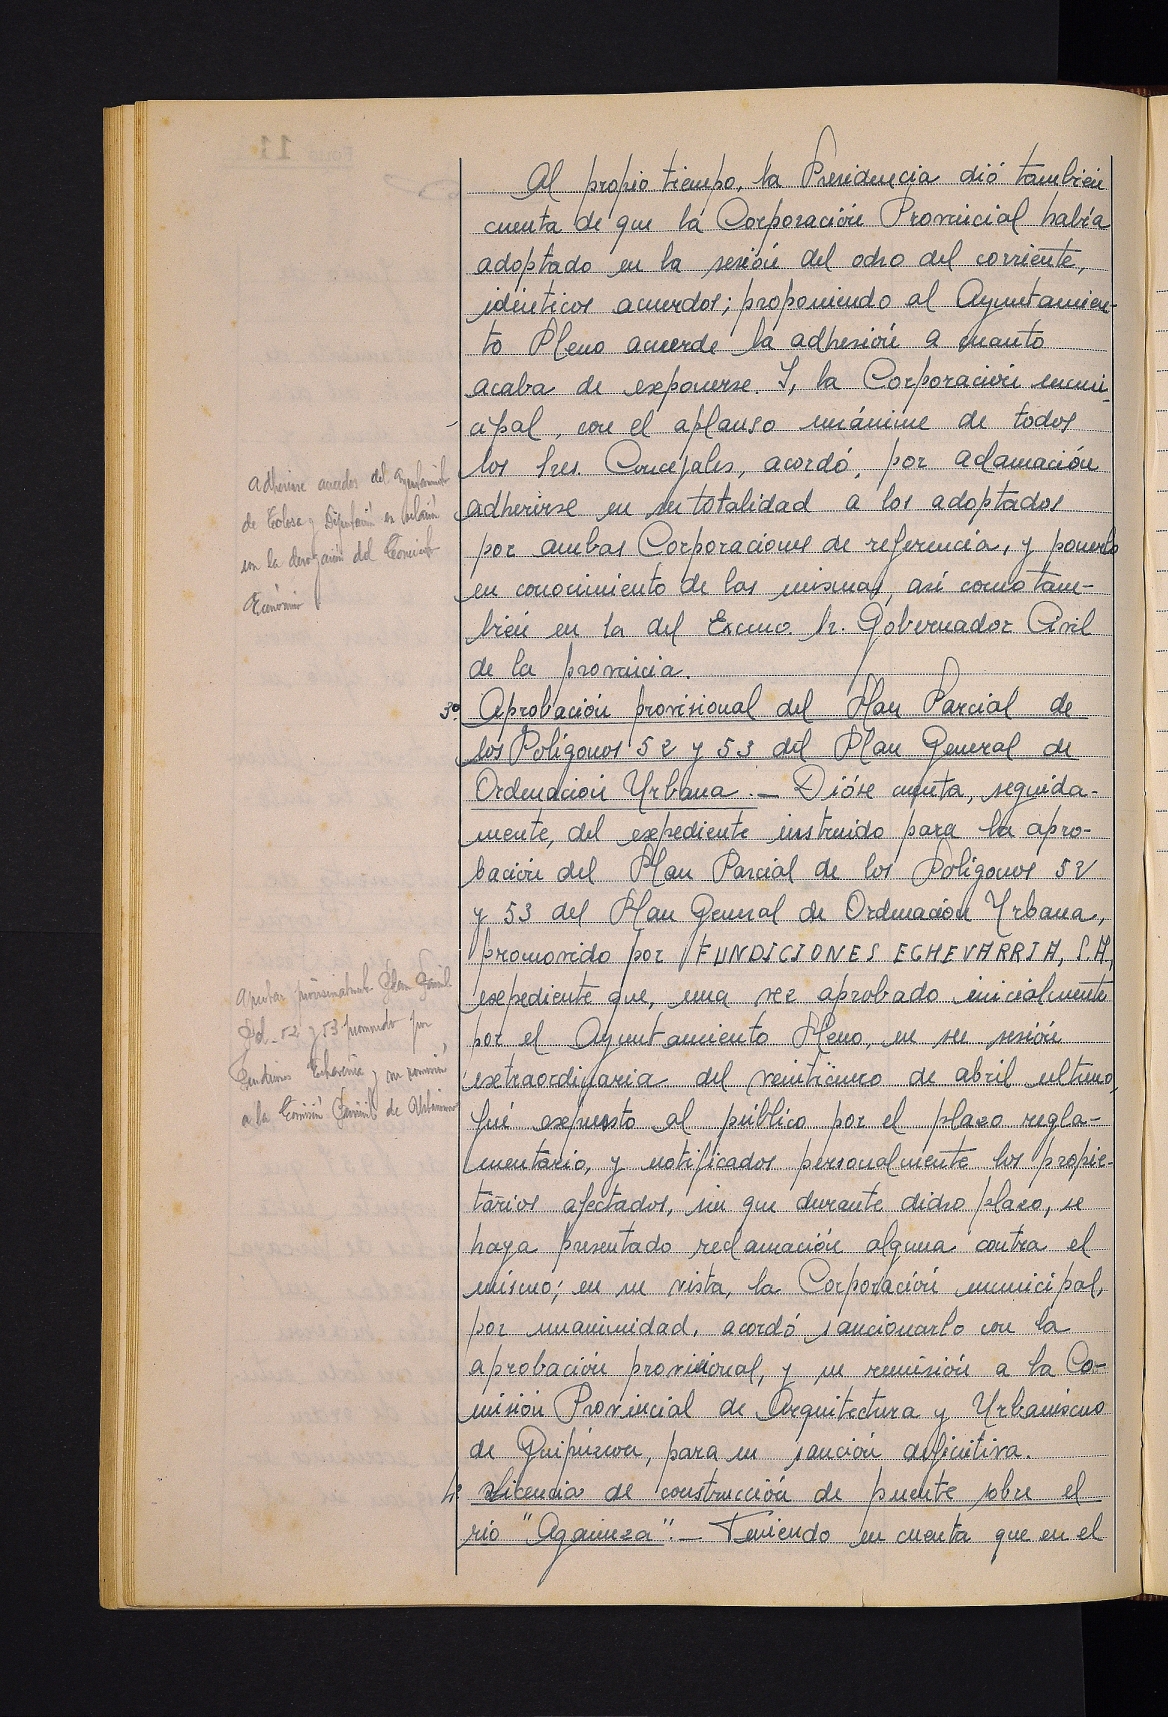 Al propio tiempo, la Presidencia dió también
cuenta de que la Corporación Provincial había
adoptado en la sesión del ocho del corriente,
idénticos acuerdos; proponiendo al Ayuntamien-
to Pleno acuerde la adhesión a cuanto
acaba de exponerse. Y, la Corporación muni-
cipal, con el aplauso unánime de todos
los Sres. Concejales, acordó, por aclamación
adherirse en su totalidad a los adoptados
por ambas Corporaciones de referencia, y ponerlo
en conocimiento de las mismas, así como tam-
bién en la del Excmo. Sr. Gobernador Civil
de la provincia.
Adherirse acuerdos del Ayuntamiento
de Tolosa y Diputación en relación
con la derogación del Concierto
Económico
3º Aprobación provisional del Plan Parcial de
los Polígonos 52 y 53 del Plan General de
Ordenación Urbana.— Dióse cuenta, seguida-
mente, del expediente instruido para la apro-
bación del Plan Parcial de los Polígonos 52
y 53 del Plan General de Ordenación Urbana,
promovido por FUNDICIONES ECHEVARRIA, S.A,
expediente que, una vez aprobado inicialmente
por el Ayuntamiento Pleno, en su sesión
extraordinaria del veinticinco de abril último,
fué expuesto al público por el plazo regla-
mentario, y notificados personalmente los propie-
tarios afectados, sin que durante dicho plazo, se
haya presentado reclamación alguna contra el
mismo; en su vista, la Corporación municipal,
por unanimidad, acordó sancionarlo con la
aprobación provisional, y su remisión a la Co-
misión Provincial de Arquitectura y Urbanismo
de Guipúzcoa, para su sanción definitiva.
Aprobar provisionalmente Plan Parcial
Pol. 52 y 53 promovido por
Fundiciones Echevarria y su remisión
a la Comisión Provincial de Urbanismo
4º Licencia de construcción de puente sobre el
río "Agaunza".— Teniendo en cuenta que en el